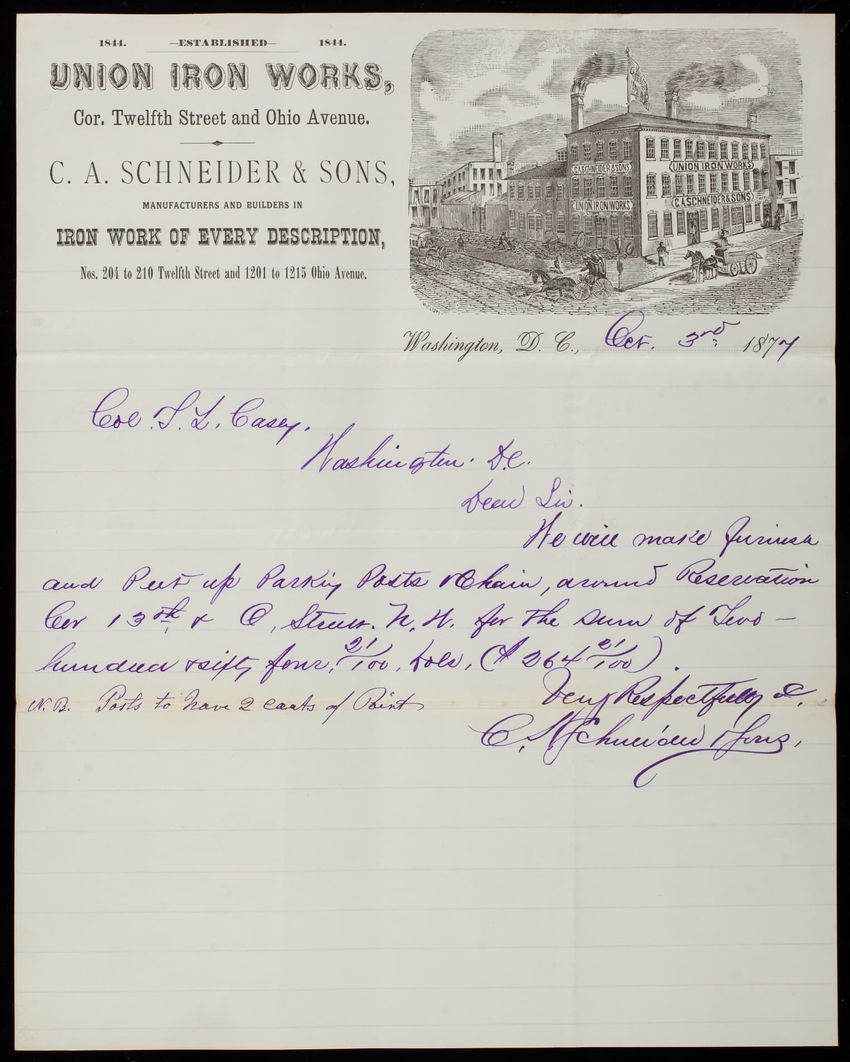 1844. —ESTABLISHED— 1844.
UNION IRON WORKS,
Cor. Twelfth Street and Ohio Avenue.
C. A. SCHNEIDER & SONS,
MANUFACTURERS AND BUILDERS IN
IRON WORK OF EVERY DESCRIPTION,
Nos. 204 to 210 Twelfth Street and 1201 to 1215 Ohio Avenue.
C.A.SCHNEIDER & SONS
UNION IRON WORKS
UNION IRON WORKS
C.A.SCHNEIDER & SONS
Washington, D. C., Oct. 3rd 1877
Col. T. L. Casey.
Washington. D.C.
Dear Sir.
We will make furnish
and Put up Parking Posts & Chain, around Reservation
Cor 13th & C, Streets. N. W. for the sum of Two —
hundred & sixty four, 21/100, Dols, ($ 264 21/100).
Very Respectfully &.
N.B. Posts to have 2 coats of Paint
C. A. Schneider & Sons,